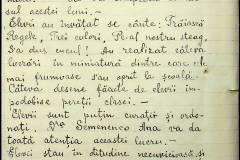 sul acestei luni. —
Elevii au învătat se cânte: Trăiască
Regele, Trei colori, Pe-al nostru steag,
Sa dus cucul! Au realizat câteva
lucrări în miniatură dintre care cele
mai frumoase s'au oprit la școală.
Câteva desene făcute de elevii îm-
podobise pereții clasei. —
Elevii sunt puțin curații și ordo-
nați. Dra Semenenco Ana va da
toată atenția acestei lucru. —
Elevii stau în atitudine necuviincioasă și